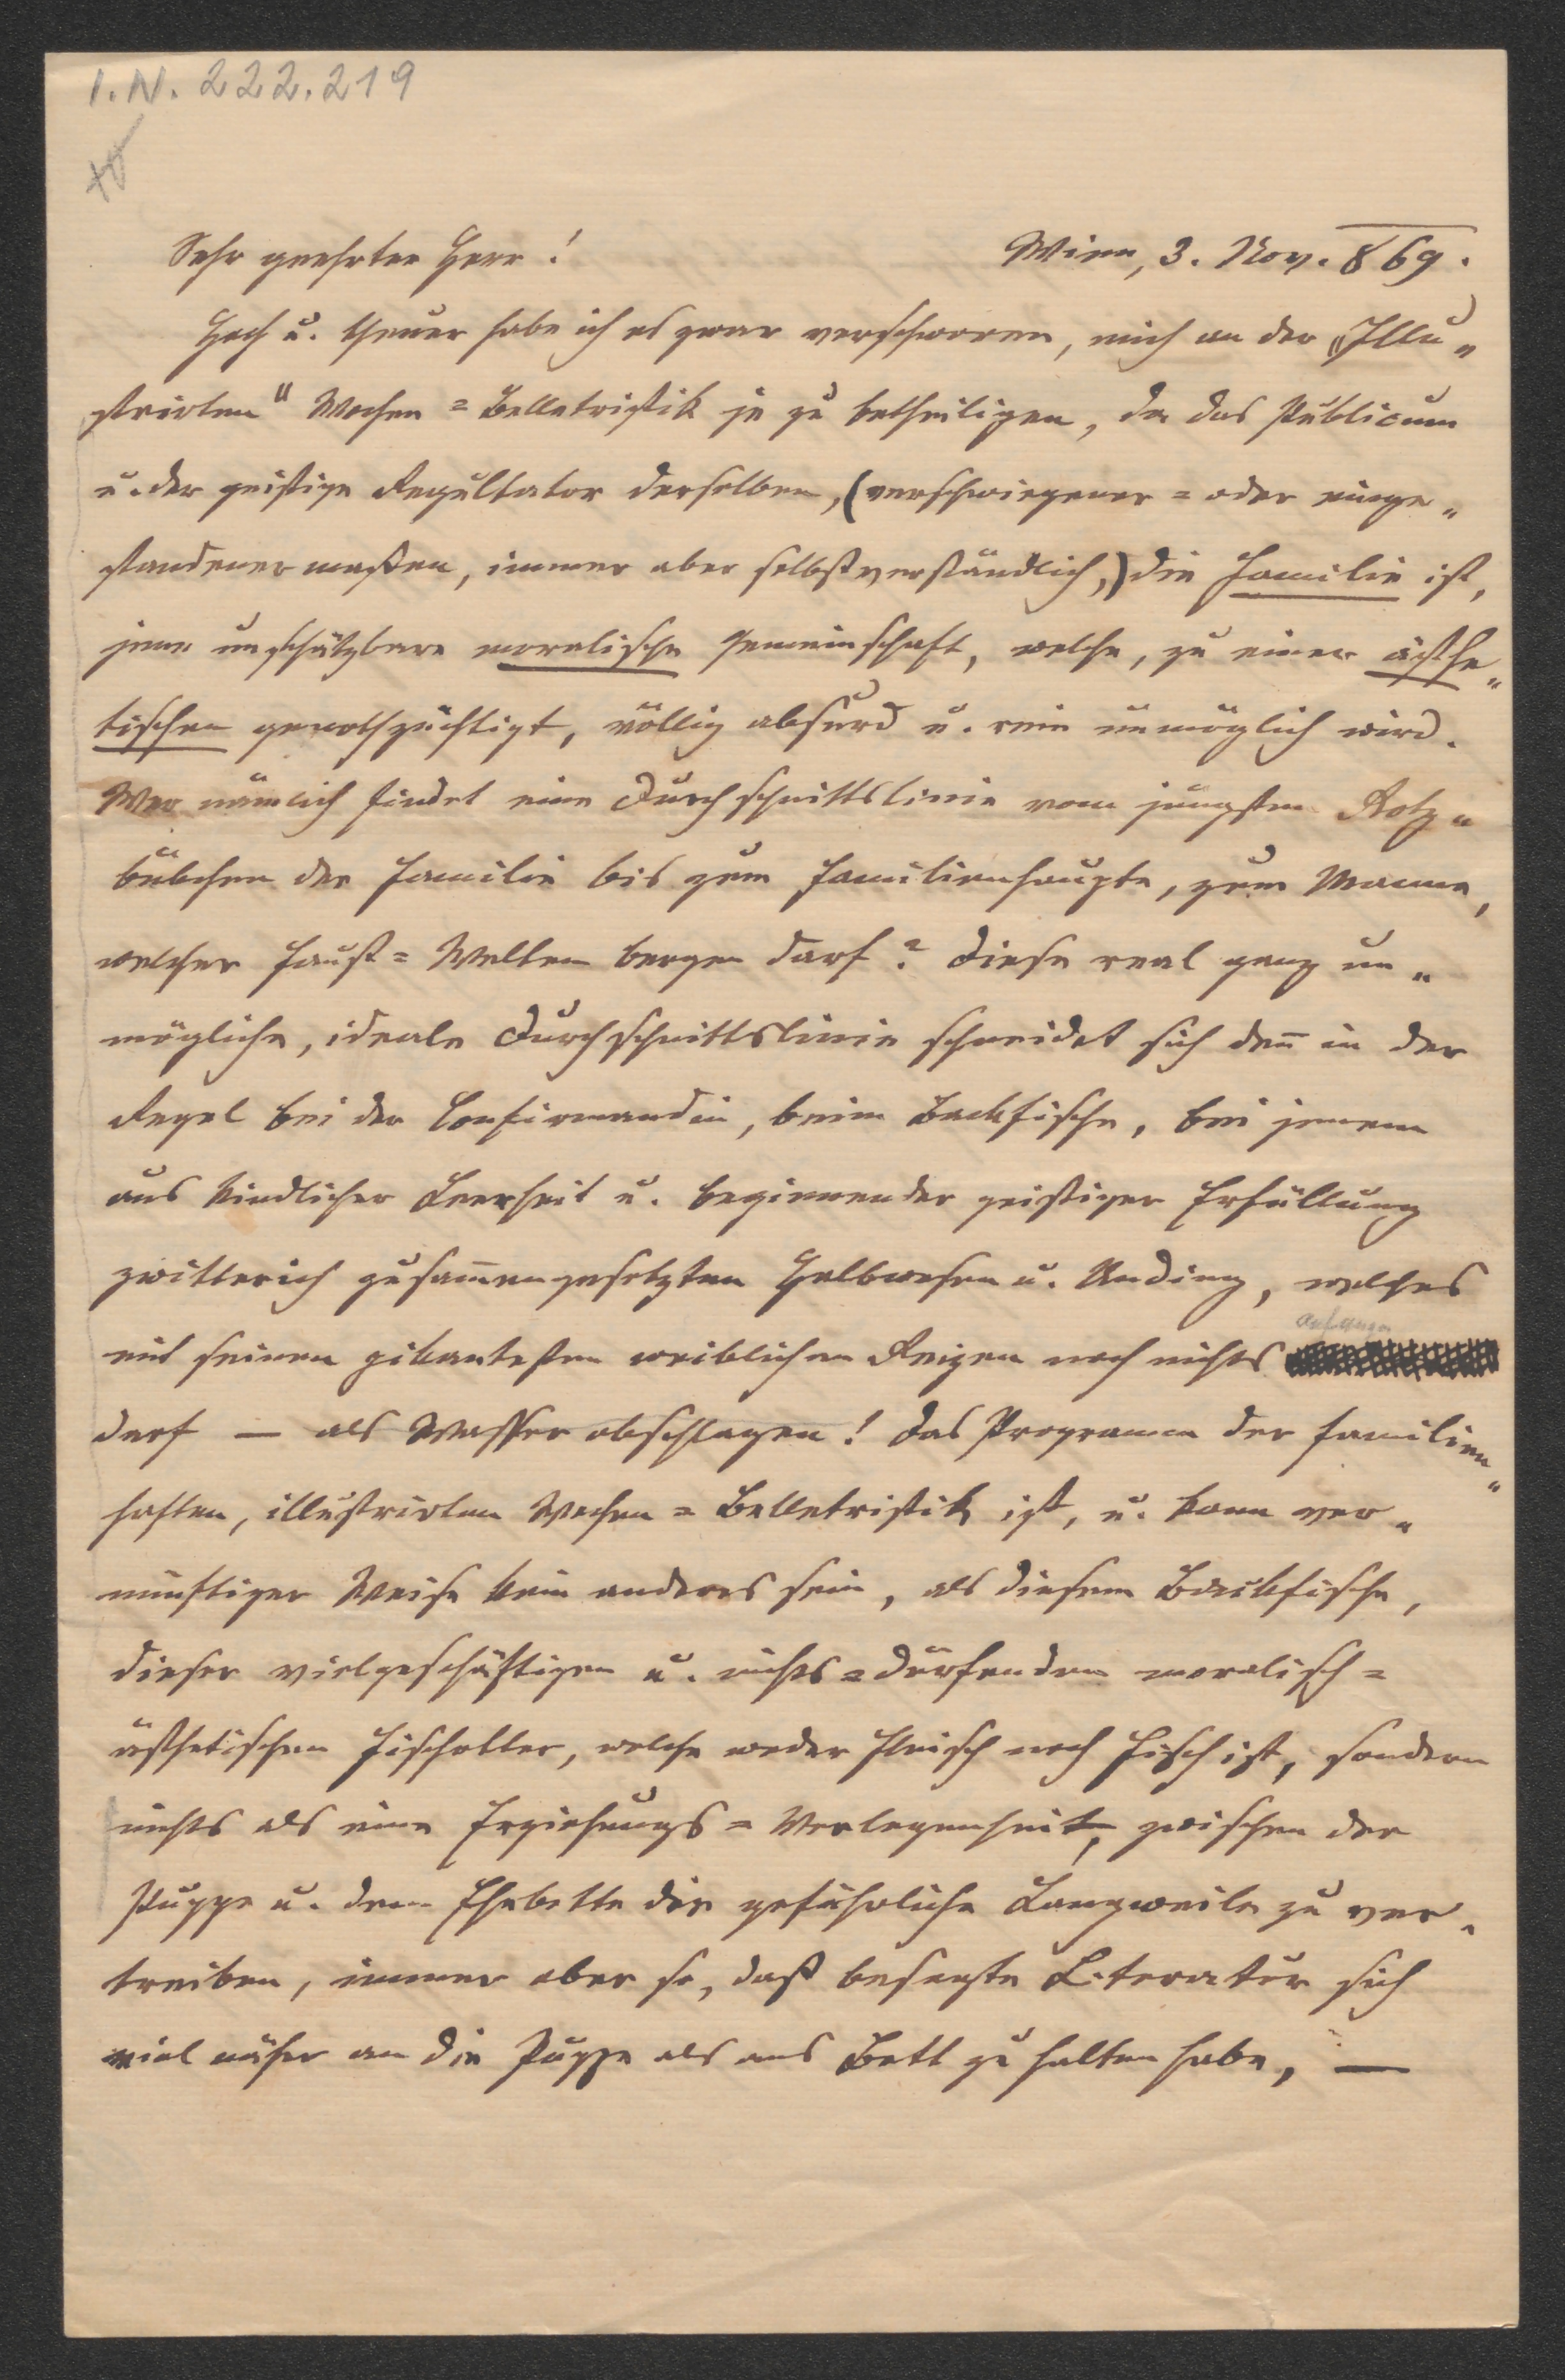 I.N. 222.219
Sehr geehrter Herr! Wien, 3. Nov. 869.
Hoch u. theuer habe ich es zwar verschworen, mich an der „Illu„
strirten" Wochen = Belletristik je zu betheiligen, da das Publicum
u. der geistige Regultator derselben, (verschwiegener = oder einge„
standenermaßen, immer aber selbstverständlich,) die Familie ist,
jene unschätzbare moralische Gemeinschaft, welche, zu einer ästhe„
tischen genothzüchtigt, völlig absurd u. rein unmöglich wird.
Wer nämlich findet eine Durchschnittslinie vom jüngsten Rotz„
bübchen der Familie bis zum Familienhaupte, zum Manne,
welcher Faust = Welten bergen darf? Diese real ganz un„
mögliche, ideale Durchschnittslinie schneidet sich den̅ in der
Regel bei der Confirmandin, beim Backfische, bei jenem
aus kindlicher Leerheit u. beginnender geistiger Erfüllung
zwitterich zusam̅engesetzten Halbwesen u. Unding, welches
mit seinen pikantesten weiblichen Reizen noch nichts anfangen
darf — als Wasser abschlagen! Das Programm der familien„
haften, illustrirten Wochen = Belletristik ist, u. kann ver„
nünftiger Weise kein anderes sein, als diesem Backfische,
dieser vielgeschäftigen u. nichts = dürfenden moralisch =
ästhetischen Fischotter, welche weder Fleisch noch Fisch ist, sondern
nichts als eine Erziehungs = Verlegenheit, zwischen der
Puppe u. dem Ehebette die gefährliche Langweile zu ver„
treiben, immer aber so, daß besagte Literatur sich
viel näher an die Puppe als ans Bett zu halten habe, —